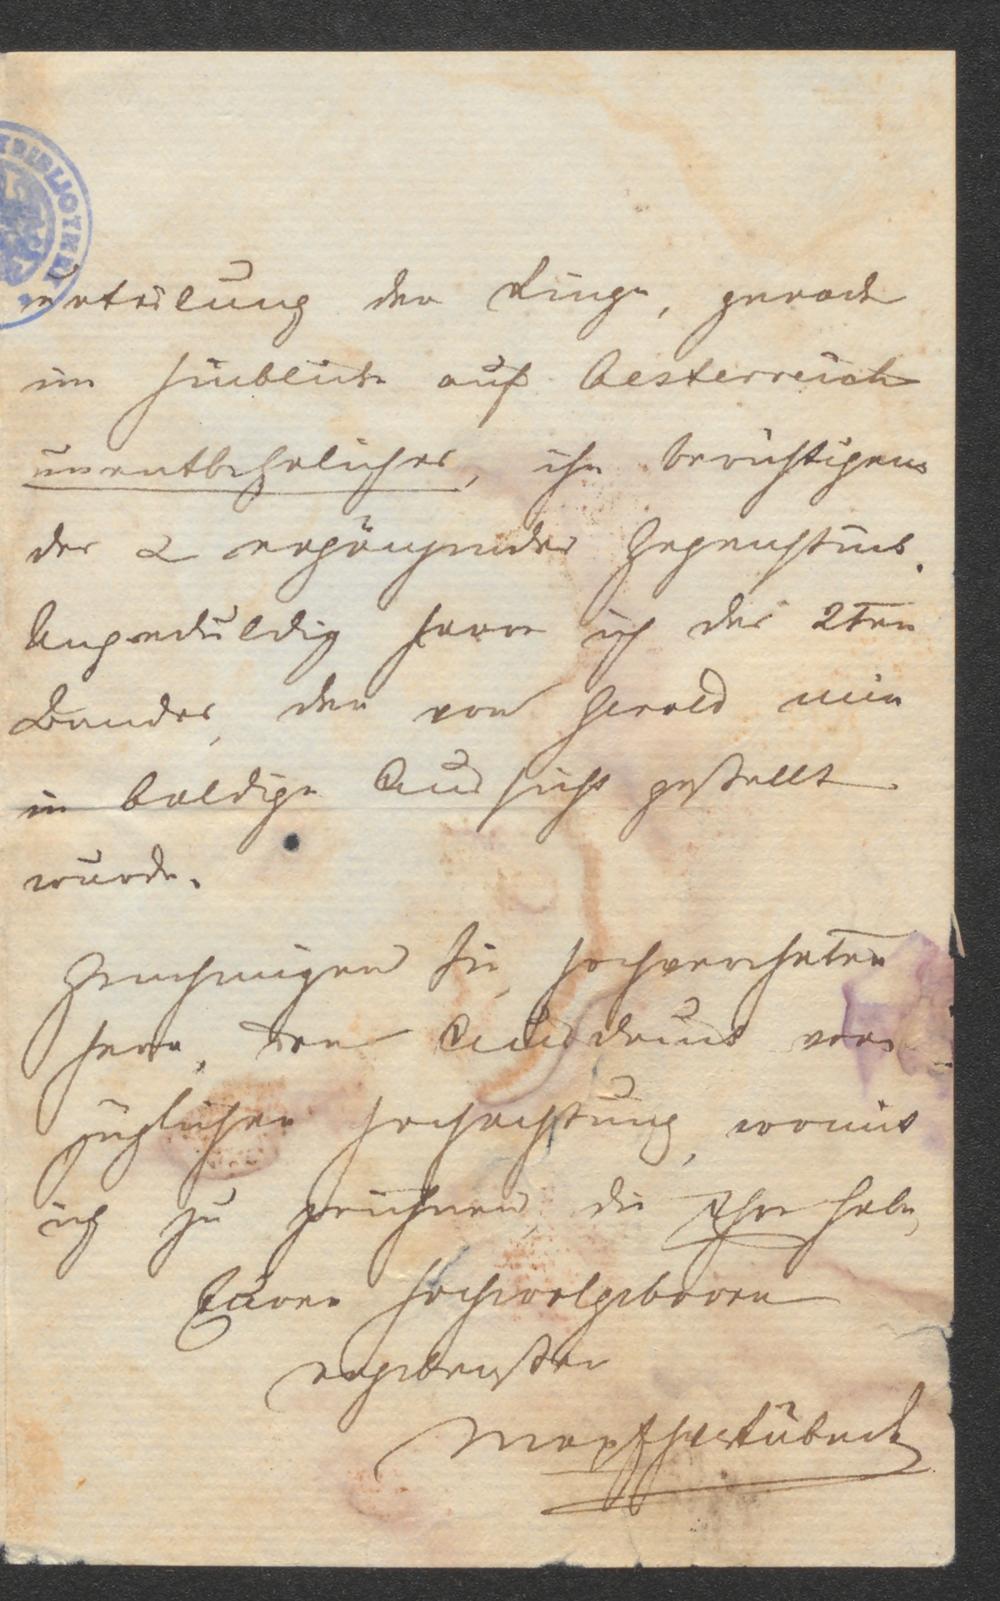 BIBLIOTHEK
urteilung der Dinge, gerade
im Hinblicke auf Oesterreich
unentbehrliches, ihn
der ergänzendes Gegenstück.
Ungeduldig harre ich des 2ten
Bandes, der von Gerold mir
in baldige Aussicht gestellt
wurde.
Genehmigen Sie, hochverehrter
Herr, den Ausdruck vor
züglicher Hochachtung, womit
ich zu zeichnen die Ehre habe,
Euer Hochwolgeboren
ergebenster
Kübeck